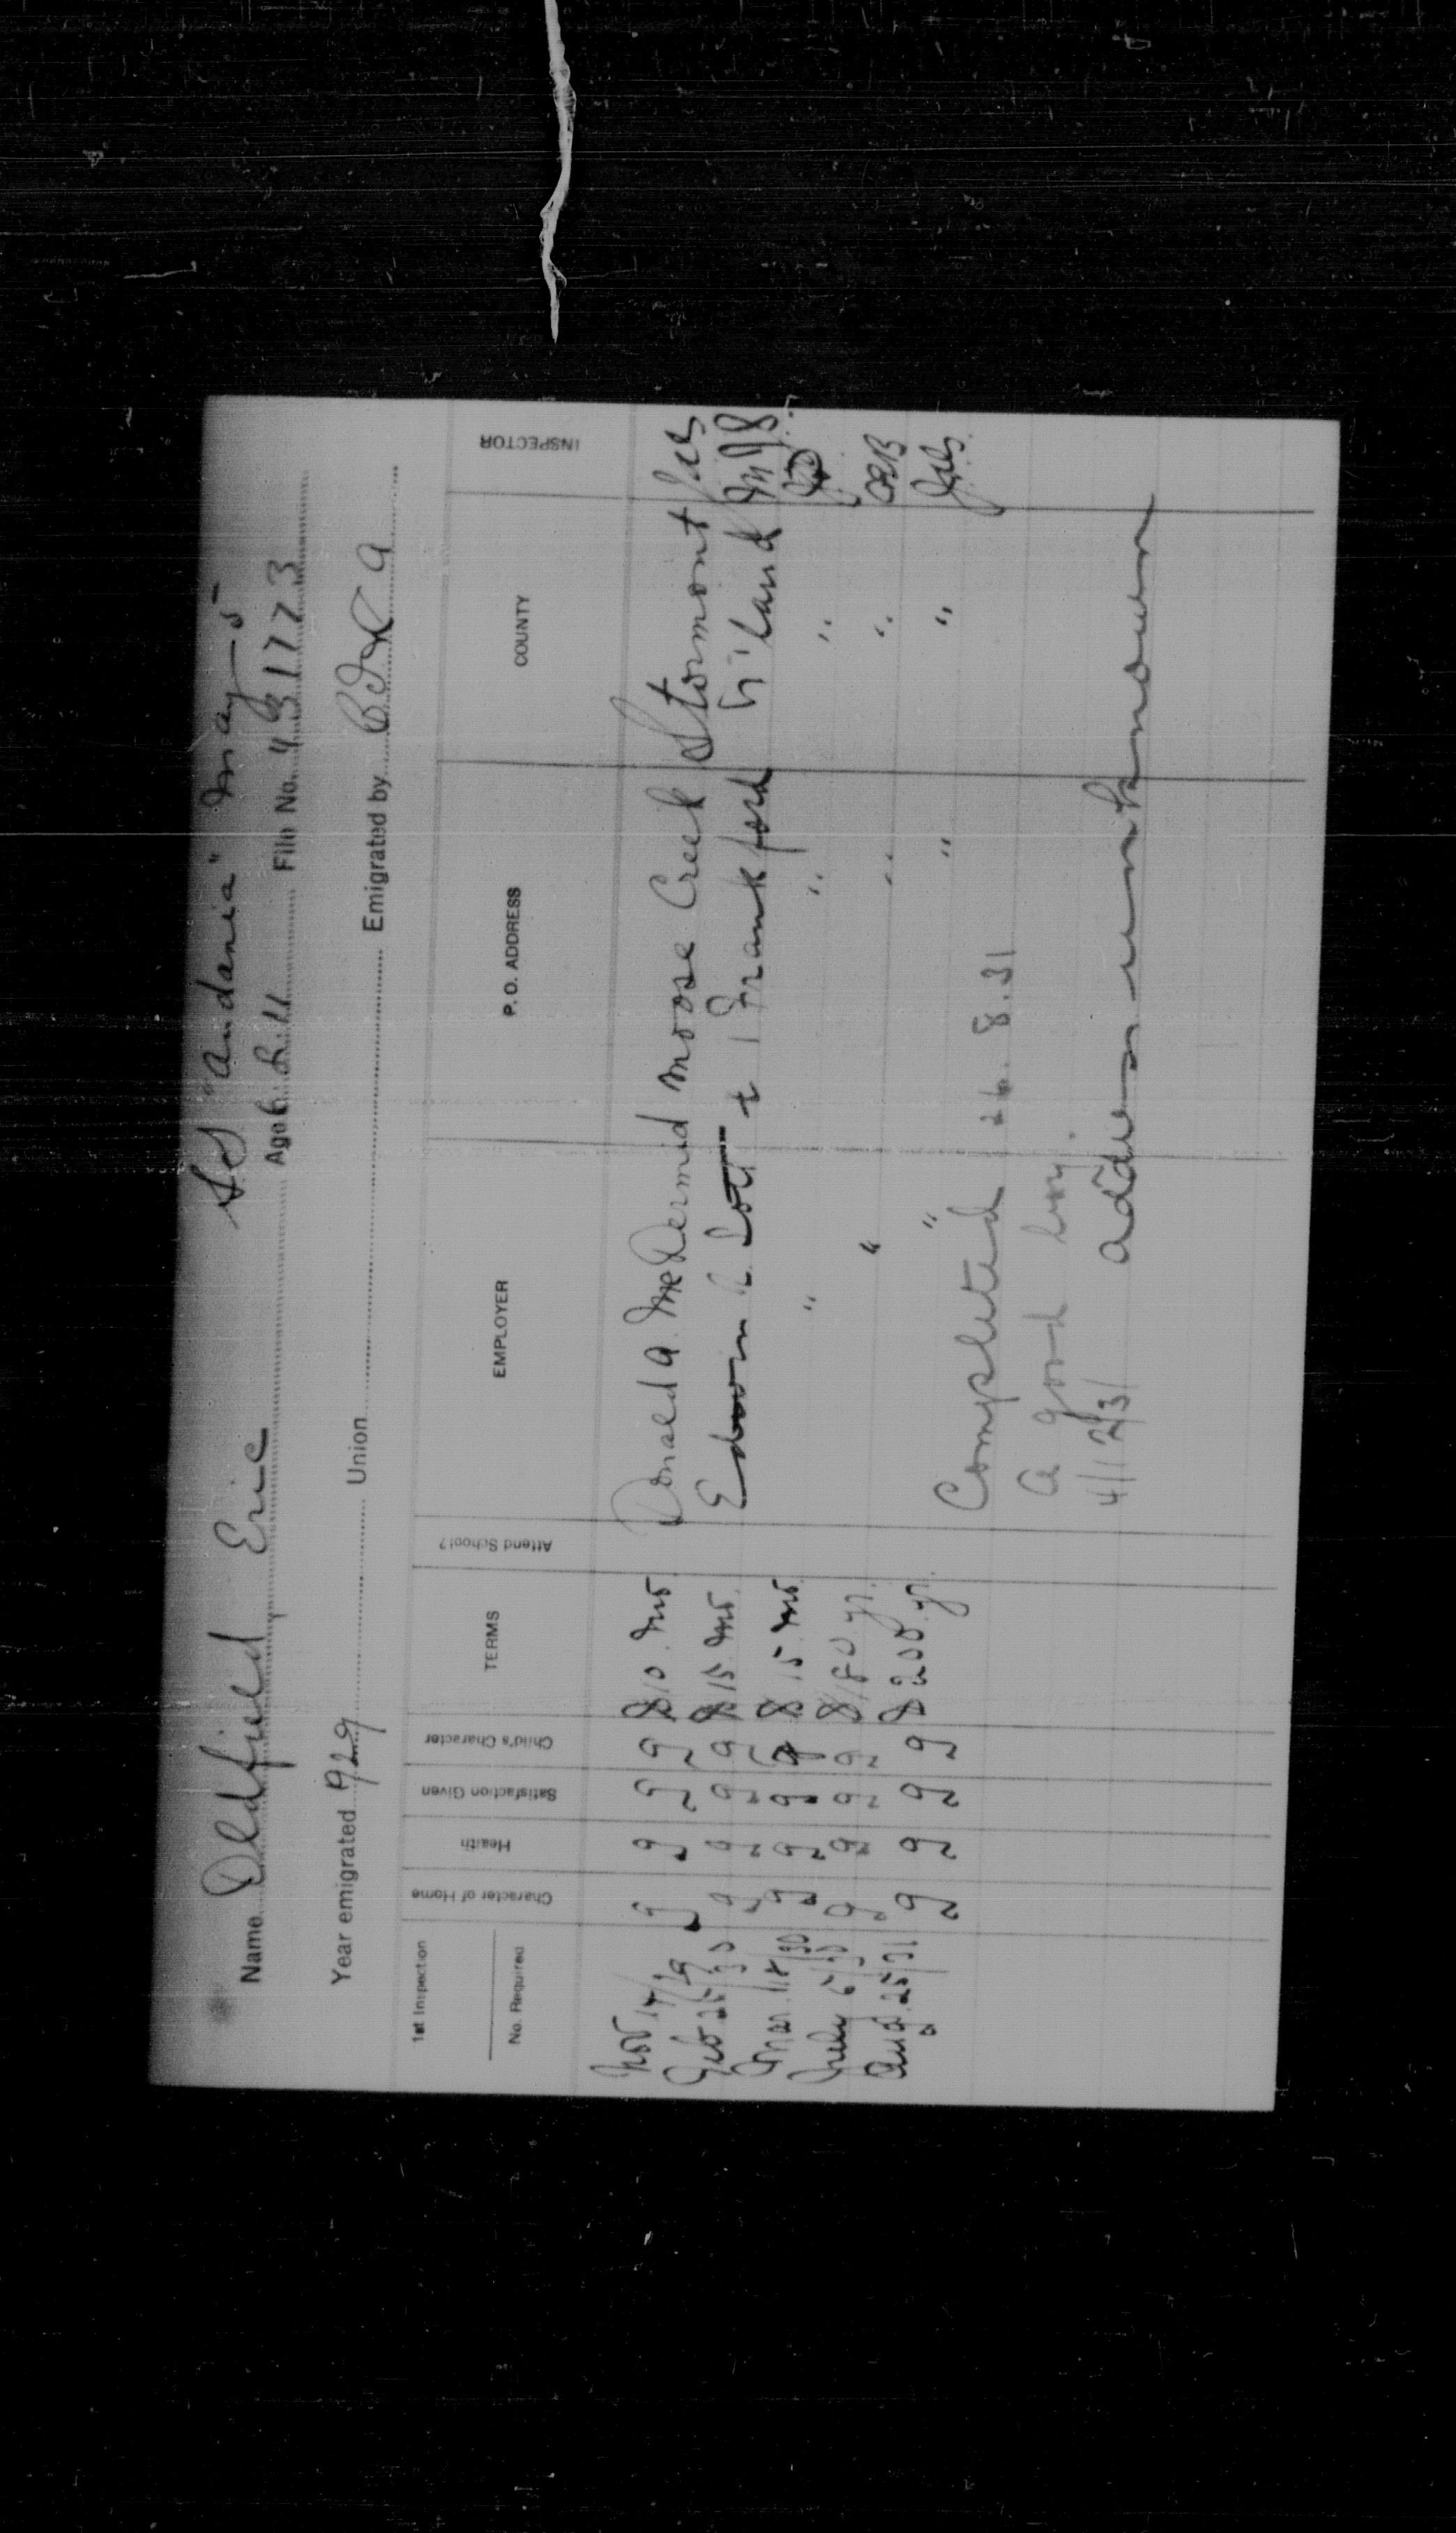 SS "Andania" May - 5
Name Oldfield Eric Age 6.2.11 File No. 431773
Year emigrated 929 Union Emigrated by
1st Inspection No. Required Character of Home Health Satisfaction Given Child's Character TERMS Attend School? EMPLOYER P. O. ADDRESS COUNTY INSPECTOR
Nov 14/29 g g g g $10. mo Donald A. McDermid Moose Creek Stormont
Feb 25/30 g g g g $15 mo. Edwin R. Lott + 1 Frankford N'land
Mar. 18/30 g g g g $15. mo. " " "
July 5/30 g g g g $180 yr. " " " OEB
Aug. 25/31 g g g g $200 yr. " " "
Completed 26.8.31
a good boy.
4/12/31 address unknown